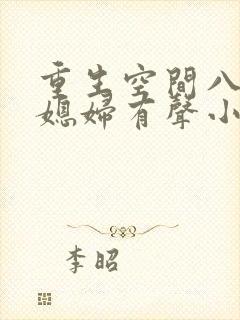 重生空間八
媳婦有聲小
李昭